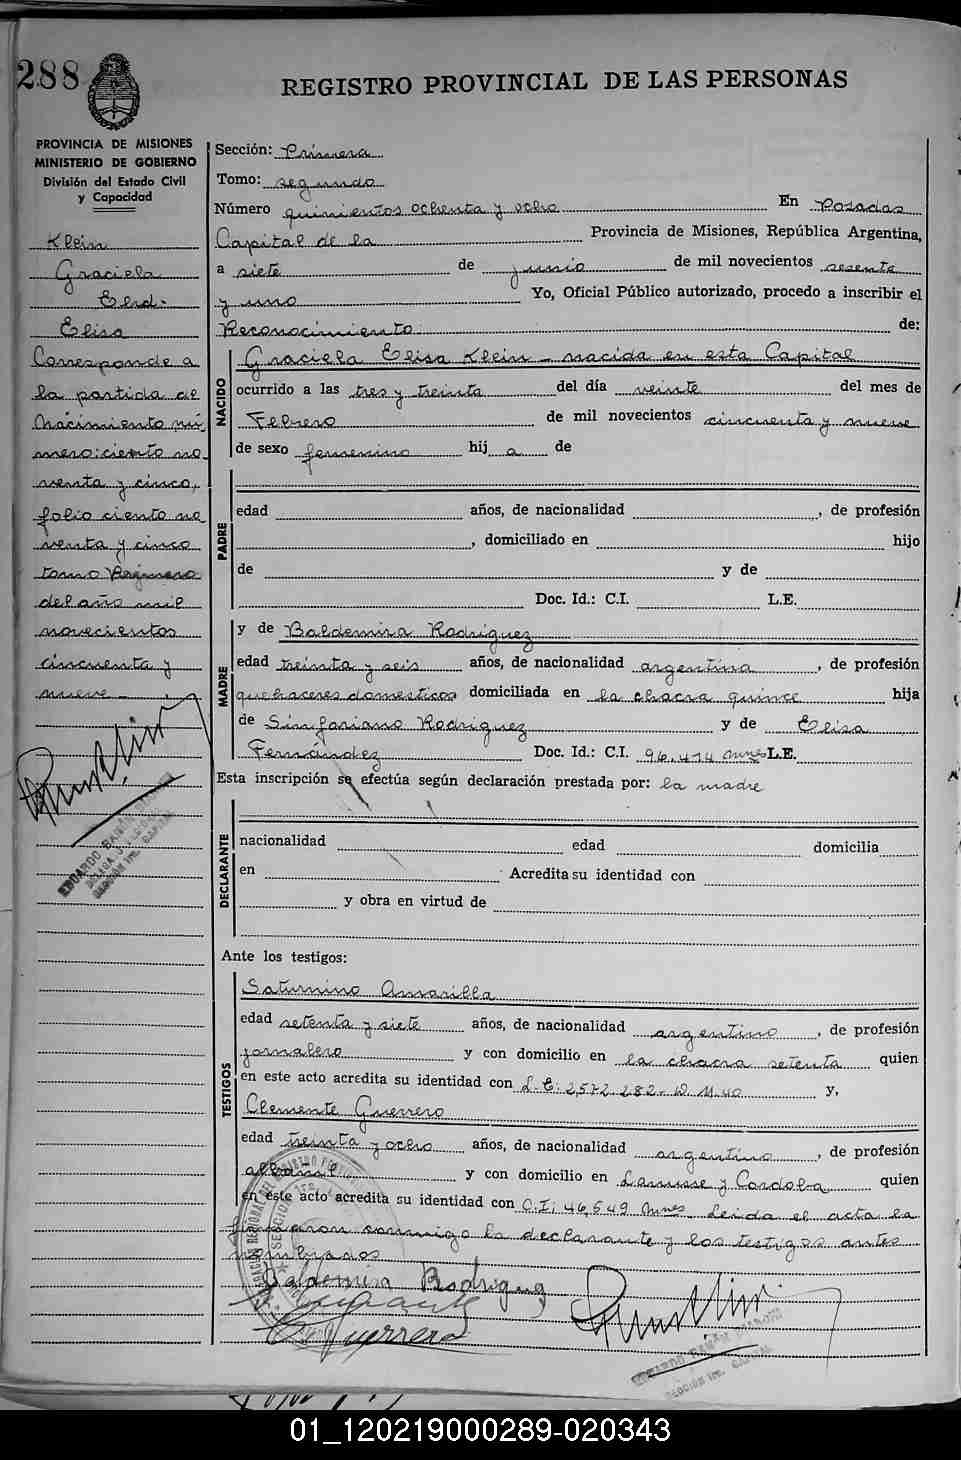 288
REGISTRO PROVINCIAL DE LAS PERSONAS
PROVINCIA DE MISIONES
MINISTERIO DE GOBIERNO
División del Estado Civil
y Capacidad
Klein
Graciela
Elisa
Corresponde a
la partida de
Nacimiento nú-
mero: ciento no
venta y cinco,
folio ciento no
venta y cinco
tomo Primero
del año mil
novecientos
cincuenta y
nueve
Sección: Primera
Tomo: segundo
Número quinientos ochenta y ocho En Posadas
Capital de la Provincia de Misiones, República Argentina,
a siete de junio de mil novecientos sesenta
y uno Yo, Oficial Público autorizado, procedo a inscribir el
Reconocimiento de:
NACIDO
Graciela Elisa Klein - nacida en esta Capital
ocurrido a las tres y treinta del día veinte del mes de
Febrero de mil novecientos cincuenta y nueve
de sexo femenino hij a de
PADRE
edad años, de nacionalidad , de profesión
, domiciliado en hijo
de y de
Doc. Id.: C.I. L.E.
MADRE
y de Baldemira Rodriguez
edad treinta y seis años, de nacionalidad argentina , de profesión
quehaceres domesticos domiciliada en la chacra quince hija
de Sinforiano Rodriguez y de Elisa
Fernández Doc. Id.: C.I. 96.474 Mnes L.E.
Esta inscripción se efectúa según declaración prestada por: la madre
DECLARANTE
nacionalidad edad domicilia
en Acredita su identidad con
y obra en virtud de
Ante los testigos:
TESTIGOS
Saturnino Amarilla
edad setenta y siete años, de nacionalidad argentino , de profesión
jornalero y con domicilio en la chacra setenta quien
en este acto acredita su identidad con L.E. 2,572.282. D.M. 40 y,
Clemente Guerrero
edad treinta y ocho años, de nacionalidad argentino , de profesión
albañil y con domicilio en Lanusse y Cordoba quien
en este acto acredita su identidad con C.I: 46,549 Mnes. Leida el acta la
firmaron conmigo la declarante y los testigos antes
nombrados
Baldemira Rodriguez
C Guerrero
01_120219000289-020343